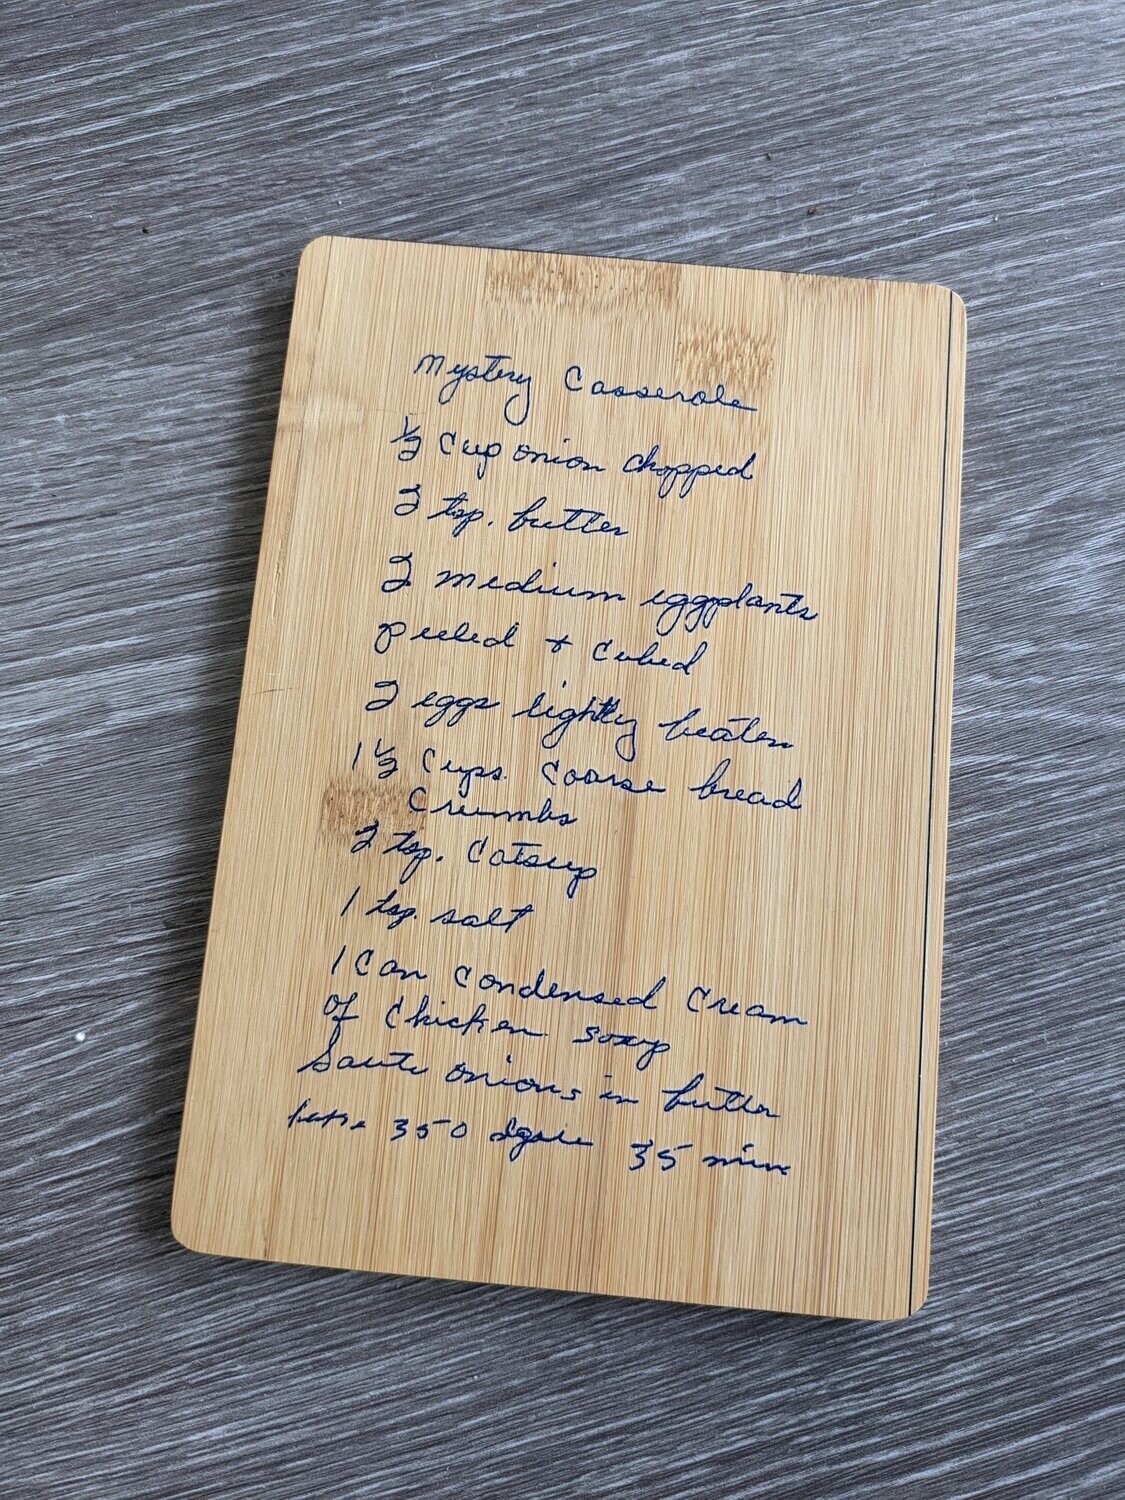 Mystery Casserole
1/2 Cup onion chopped
2 tsp. butter
2 medium eggplants
peeled + cubed
2 eggs lightly beaten
1 1/2 Cups. Coarse bread
Crumbs
2 tsp. Catsup
1 tsp. salt
1 Can Condensed Cream
of Chicken soup
Saute onions in butter
bake 350 35 min